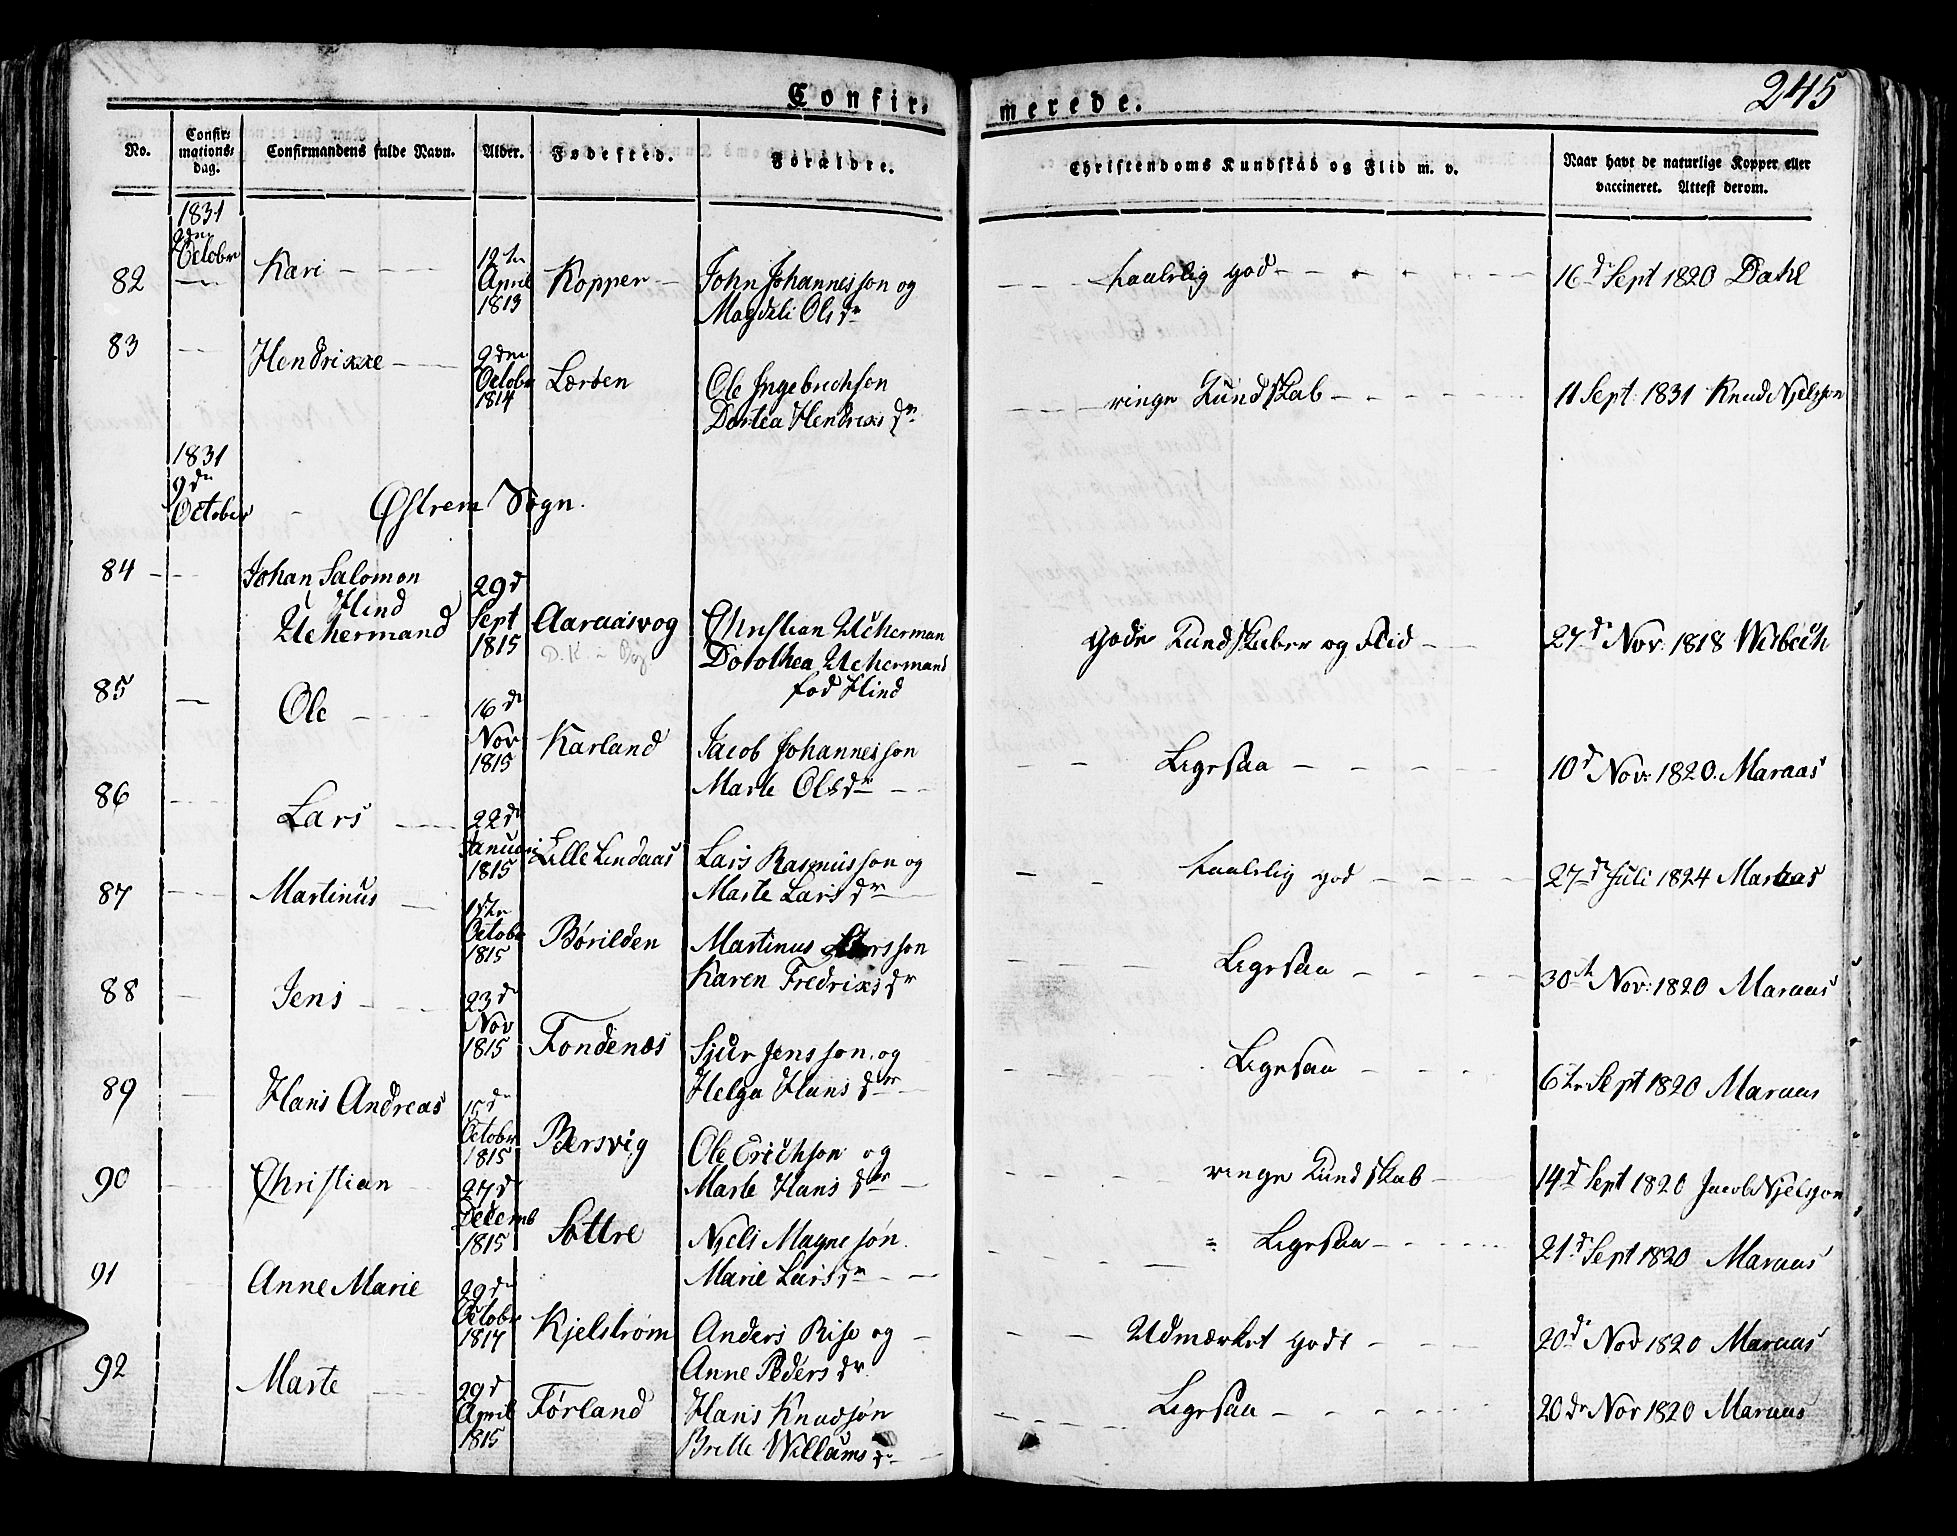 245
Confir-
merede.
No.
Confir-
mations-
dag.
Confirmandens fulde Navn.
Alder.
Fødested.
Forældre.
Christendoms Kundskab og Flid m. v.
Naar havt de naturlige Kopper eller
vaccineret. Attest derom.
1831
2den
October
82 — Kari — 12te April 1813 Kopper — John Johannesson og
Magdeli Olsdr
taalelig god — 16d Sept 1820 Dahl
83 — Hendrixxe — 9den Octobr 1814 Lørden Ole Ingebrichson
Dortea Hendrixsdr
ringe Kundskab — 11 Sept 1831 Knud Njelsson
1831
9de
October
Østrem Sogn.
84 — Johan Salomon
Hind
Uchermand 29d Sept 1815 Aaraasvog Christian Ucherman
Dorothea Uchermand
fød Hind
gode Kundskaber og Flid — 27d Nov: 1818
85 — Ole — 16d Nov 1815 Karland Jacob Johannesson
Marte Olsdr
Ligesaa — 10d Nov: 1820. Maraas
86 — Lars — 22d Januari 1815 Lille Lindaas Lars Rasmusson og
Marte Larsdr
taalelig god — 27d Juli 1824 Maraas
87 — Martinus — October 1815 Børilden Martinus Larsson
Karen Fredrixsdr
Ligesaa — 30te Nov: 1820 Maraas
88 — Jens — 23d Nov 1815 Fondenæs Sjur Jensson og
Helga Hansdr
Ligesaa — 6te Sept 1820 Maraas
89 — Hans Andreas 15d Octobr 1815 Bersvig Ole Erichson og
Marte Hansdr
ringe Kundskab — 14d Sept 1820 Jacob Njelsson
90 — Christian 27d Decemb 1815 Søttre Njels Magneson.
Marie Larsdr
Ligesaa — 21d Sept 1820 Maraas
91 — Anne Marie 29d Octobr 1817 Kjelstrøm Anders Rise og
Anne Pedersdr
Udmærket godt — 20d Nov 1820 Maraas
92 — Marte — 29d April 1815 Førland Hans Knudsøn
Brille Willumsdr
Ligesaa — 20de Nov 1820 Maraas